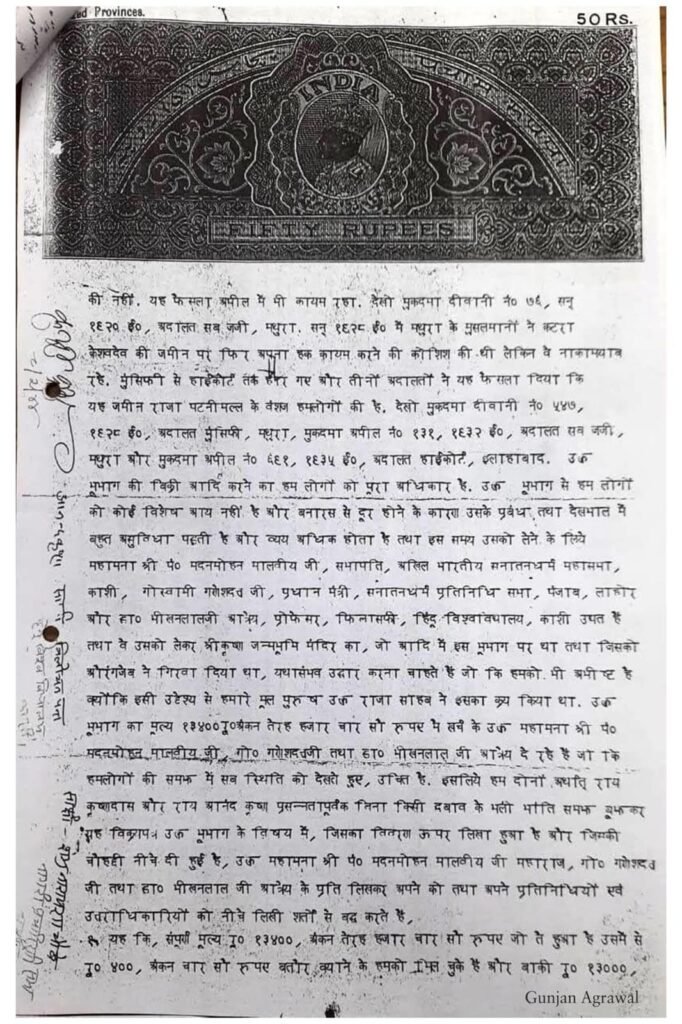 ed Provinces.
50 RS.
INDIA
FIFTY RUPEES
की नहीं. यह फैसला अपील में भी कायम रहा. देखो मुकदमा दीवानी नं० ७६, सन्
१६२० ई०, अदालत सब जजी, मथुरा. सन् १६२८ ई० में मथुरा के मुसलमानों ने कटरा
केशवदेव की जमीन पर फिर अपना हक कायम करने की कोशिश की थी लेकिन वे नाकामयाब
रहे. मुंसिफी से हाईकोर्ट तक हार गए और तीनों अदालतों ने यह फैसला दिया कि
यह जमीन राजा पटनीमल्ल के वंशज हमलोगों की है. देखो मुकदमा दीवानी नं० ५४७,
१६२८ ई०, अदालत मुंसिफी, मथुरा, मुकदमा अपील नं० १३१, १६३२ ई०, अदालत सब जजी,
मथुरा और मुकदमा अपील नं० ६६१, १६३५ ई०, अदालत हाईकोर्ट, इलाहाबाद. उक्त
भूभाग की बिक्री आदि करने का हम लोगों को पूरा अधिकार है. उक्त भूभाग से हम लोगों
को कोई विशेष आय नहीं है और बनारस से दूर होने के कारण उसके प्रबंध तथा देखभाल में
बहुत असुविधा पड़ती है और व्यय अधिक होता है तथा इस समय उसको लेने के लिये
महामना श्री पं० मदनमोहन मालवीय जी, सभापति, अखिल भारतीय सनातनधर्म महासभा,
काशी, गोस्वामी गणेशदत्त जी, प्रधान मंत्री, सनातनधर्म प्रतिनिधि सभा, पंजाब, लाहोर
और डा० भीखनलालजी आत्रेय, प्रोफेसर, फिलासफी, हिंदू विश्वविद्यालय, काशी उद्यत हैं
तथा वे उसको लेकर श्रीकृष्ण जन्मभूमि मंदिर का, जो आदि में इस भूभाग पर था तथा जिसको
औरंगजेब ने गिरवा दिया था, यथासंभव उद्धार करना चाहते हैं जो कि हमको भी अभीष्ट है
क्योंकि इसी उद्देश्य से हमारे मूल पुरुष उक्त राजा साहब ने इसका क्रय किया था. उक्त
भूभाग का मूल्य १३४०० रु० अंकन तेरह हजार चार सौ रुपए मै खर्च के उक्त महामना श्री पं०
मदनमोहन मालवीय जी, गो० गणेशदत्तजी तथा डा० भीखनलाल जी आत्रेय दे रहे हैं जो कि
हमलोगों की समझ में सब स्थिति को देखते हुए, उचित है. इसलिये हम दोनों अर्थात् राय
कृष्णदास और राय आनंद कृष्ण प्रसन्नतापूर्वक बिना किसी दबाव के भली भांति समझ बूझकर
यह विक्रयपत्र उक्त भूभाग के विषय में, जिसका विवरण ऊपर लिखा हुआ है और जिसकी
चौहद्दी नीचे दी हुई है, उक्त महामना श्री पं० मदनमोहन मालवीय जी महाराज, गो० गणेशदत्त
जी तथा डा० भीखनलाल जी आत्रेय के प्रति लिखकर अपने को तथा अपने प्रतिनिधियों एवं
उत्तराधिकारियों को नीचे लिखी शर्तों से बद्ध करते हैं,
१. यह कि, संपूर्ण मूल्य रु० १३४००, अंकन तेरह हजार चार सौ रुपए जो तै हुआ है उसमें से
रु० ४००, अंकन चार सौ रुपए बतौर बयाने के हमको मिल चुके हैं और बाकी रु० १३०००,
Gunjan Agrawal